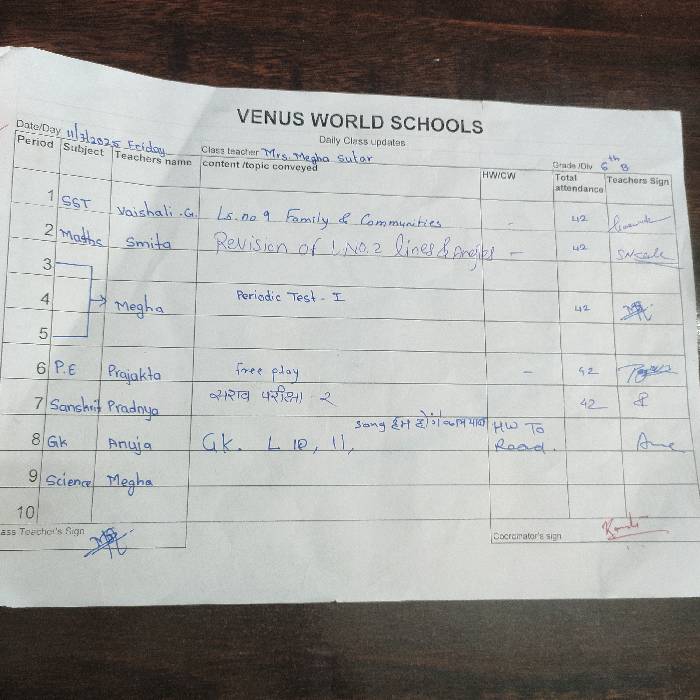 VENUS WORLD SCHOOLS
Daily Class updates
Date/Day 11/7/2025 Friday Class teacher Mrs. Megha Sutar Grade /Div 6th B
Period Subject Teachers name content /topic conveyed HW/CW Total attendance Teachers Sign
1 SST Vaishali .G. Ls. no 9 Family & Communities - 42
2 Maths Smita Revision of L.NO.2 lines & Angles - 42
3
4 Megha Periodic Test - I 42
5
6 P.E Prajakta free play - 42
7 Sanskrit Pradnya सराव परीक्षा २ 42
8 Gk Anuja GK. L 10, 11, song हम होंगे कामयाब HW To Read.
9 Science Megha
10
ass Teacher's Sign Coordinator's sign